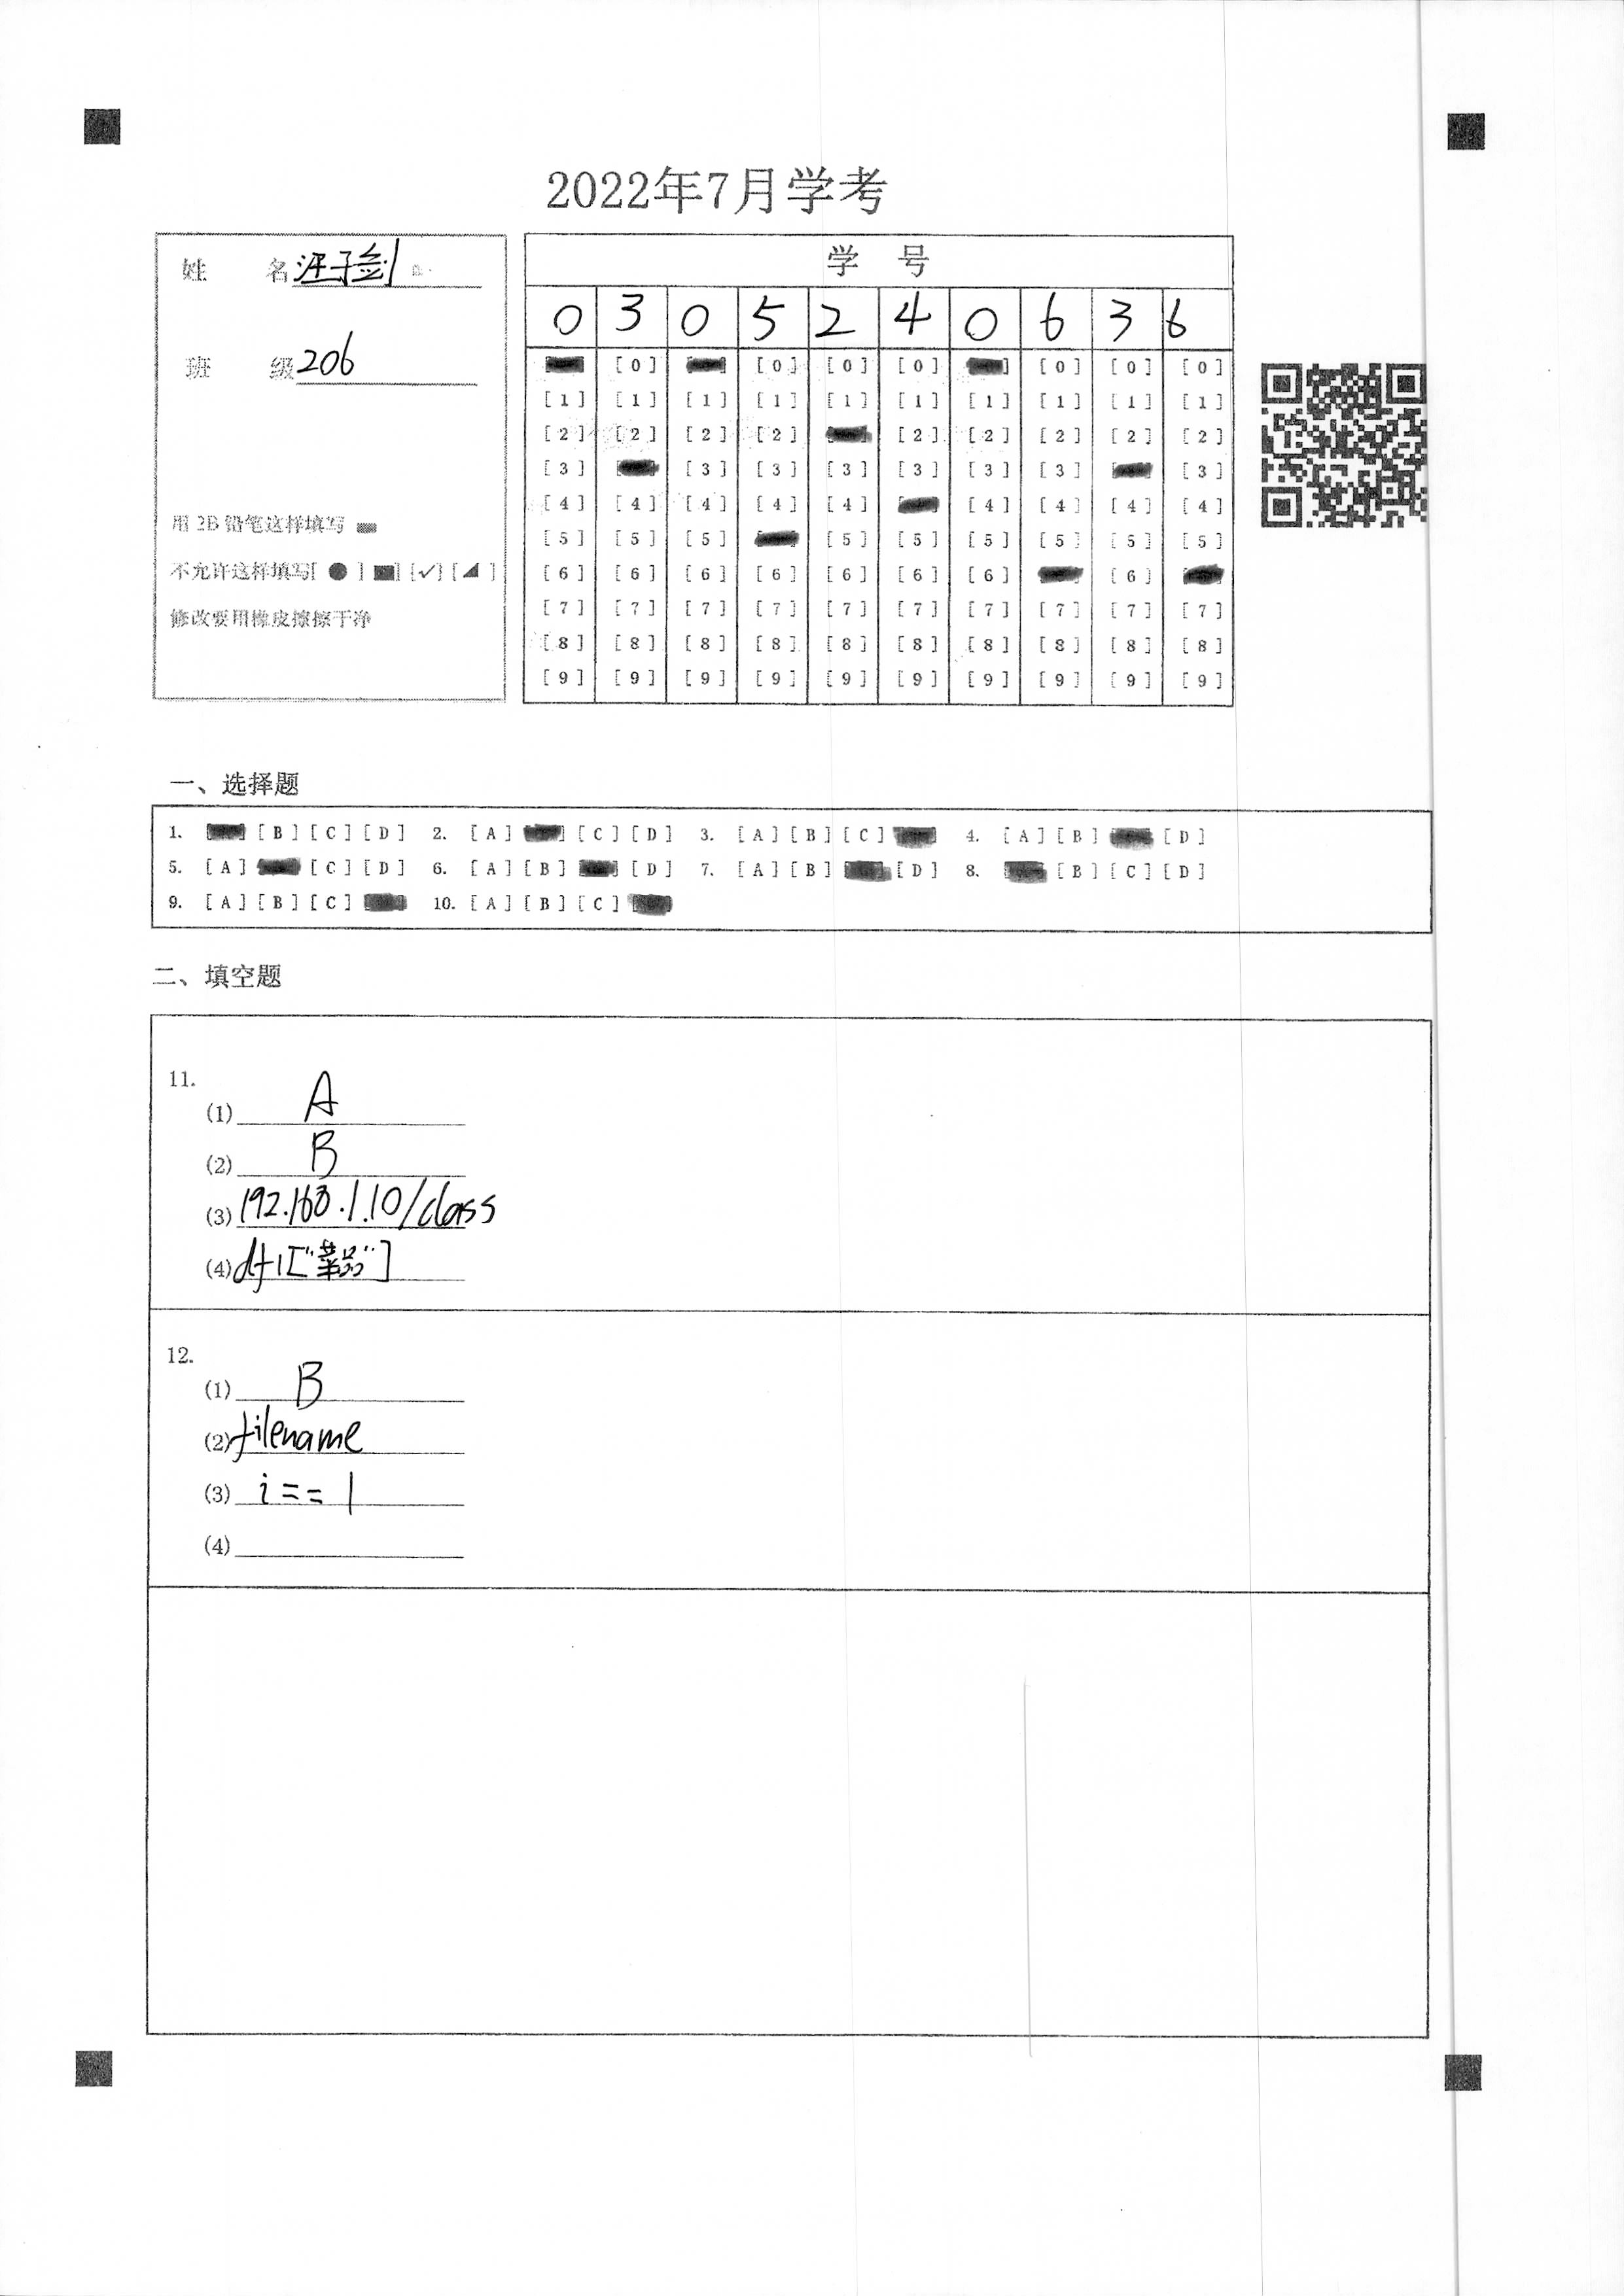 2022年7月学考
姓 名 汪子剑
班 级 206
用 2B 铅笔这样填写
不允许这样填写[ ● ] [■] [✓] [◢ ]
修改要用橡皮擦擦干净
学 号
0 3 0 5 2 4 0 6 3 6
[0] [0] [0] [0] [0] [0] [0]
[1] [1] [1] [1] [1] [1] [1] [1] [1] [1]
[2] [2] [2] [2] [2] [2] [2] [2] [2]
[3] [3] [3] [3] [3] [3] [3] [3]
[4] [4] [4] [4] [4] [4] [4] [4] [4]
[5] [5] [5] [5] [5] [5] [5] [5] [5]
[6] [6] [6] [6] [6] [6] [6] [6]
[7] [7] [7] [7] [7] [7] [7] [7] [7] [7]
[8] [8] [8] [8] [8] [8] [8] [8] [8] [8]
[9] [9] [9] [9] [9] [9] [9] [9] [9] [9]
一、选择题
1. [B] [C] [D] 2. [A] [C] [D] 3. [A] [B] [C] 4. [A] [B] [D]
5. [A] [C] [D] 6. [A] [B] [D] 7. [A] [B] [D] 8. [B] [C] [D]
9. [A] [B] [C] 10. [A] [B] [C]
二、填空题
11.
(1) A
(2) B
(3) 192.168.1.10/class
(4) df1["菜品"]
12.
(1) B
(2) filename
(3) i == 1
(4)